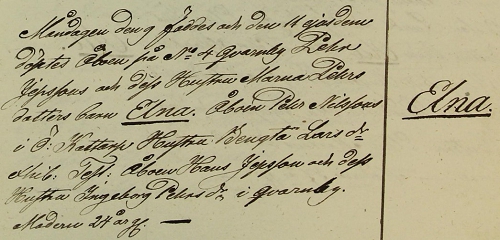 Måndagen den 9 föddes och den 11 ejusdem
döptes Åboen på No 4 Qvarnby Pehr
Jeppsons och dess Hustru Marna Pehrs
dotters barn Elna. Åboen Pehr Nilssons
i Ö: Kattarp Hustru Bengta Lars dr
bar. Test. Åboen Hans Jeppson och dess
Hustru Ingeborg Pehrs dr i Qvarnby.
Modern 24 år gl. —
Elna.